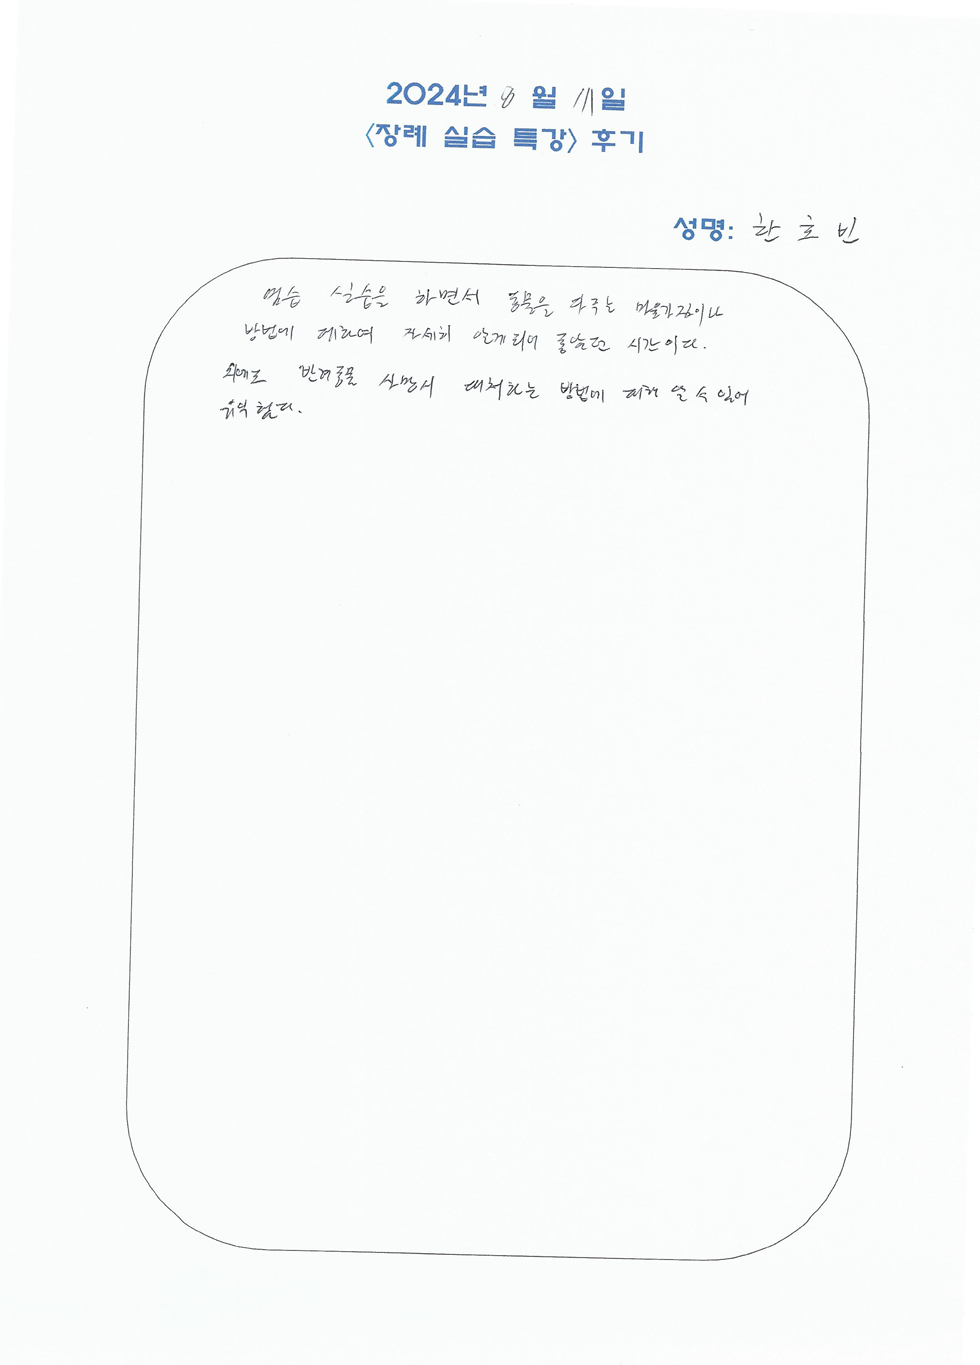 2024년 8 월 11일
<장례 실습 특강> 후기
성명: 한 호 빈
염습 실습을 하면서 동물을 다루는 마음가짐이나
방법에 대하여 자세히 알게되어 좋았던 시간이다.
외에도 반려동물 사망시 대처하는 방법에 대해 알 수 있어
유익했다.